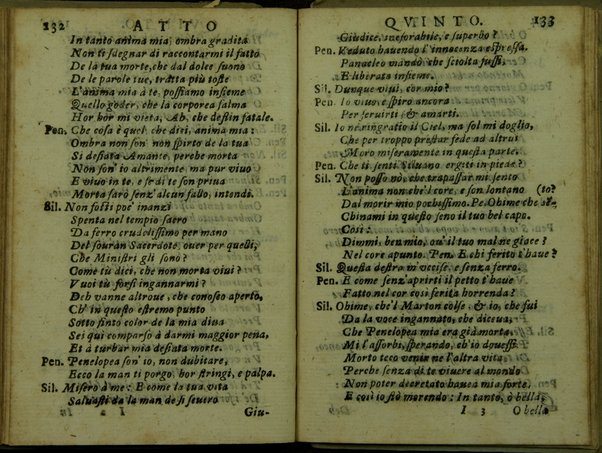 132 ATTO
In tanto anima mia, ombra gradita
Non ti sdegnar di raccontarmi il fatto
De la tua morte, che dal dolce suono
De le parole tue, tratta più tosto
L'anima mia à te, possiamo insieme
Quello goder, che la corporea salma
Hor hor mi vieta, Ah, che destin fatale.
Pen. Che cosa è quel, che diri, anima mia:
Ombra non son' non spirto de la tua
Si desiata Amante, perche morta
Non son' io altrimente, ma pur viuo
E viuo in te, e se di te son priua
Morta sarò senz'alcun fallo, intendi.
Sil. Non fosti poc' inanzi
Spenta nel tempio sacro
Da ferro crudelissimo per mano
Del souran Sacerdote, ouer per quelli,
Che Ministri gli sono?
Come tù dici, che non morta viui?
Vuoi tù forsi ingannarmi?
Deh vanne altroue, che conosco aperto,
Ch' in questo estremo punto
Sotto finto color de la mia diua
Sei qui comparso à darmi maggior pena,
Et à turbar mia desiata morte.
Pen. Penelopea son' io, non dubitare,
Ecco la man ti porgo, hor stringi, e palpa.
Sil. Misero à me: E come la tua vita
Saluasti da la man de sì seuero
Giu-
QVINTO. 133
Giudice, inesorabile, e superbo?
Pen. Veduto hauendo l'innocenza espressa,
Panucleo mandò, che sciolta fussi,
E liberata insieme.
Sil. Dunque viui, cor mio?
Pen. Io viuo, e spiro ancora
Per seruirti, & amarti.
Sil. Io ne ringratio il Ciel, ma sol mi doglio,
Che per troppo prestar fede ad altrui
Moro miseramente in questa parte.
Pen. Che ti senti Siluano, ergiti in piede?
Sil. Non posso nò, che trapassar mi sento
L'anima non che'l core, e son lontano (to?
Dal morir mio pochissimo. Pe. Ohime che
Chinami in questo seno il tuo bel capo.
Così:
Dimmi, ben mio, ou' il tuo mal ne giace?
Nel core apunto. Pen. E chi ferito t'haue?
Sil. Questa destra m'vccise, e senza ferro.
Pen. E come senz'aprirti il petto t'haue
Fatto nel cor così ferita horrenda?
Sil. Ohime, che'l Marton colse, & io, che fui
Da la voce ingannato, che diceua,
Che Penelopea mia era già morta,
Mi l'assorbì, sperando, ch'io douessi
Morto teco venir ne l'altra vita
Perche senza di te viuere al mondo
Non poter decretato hauea mia sorte.
E così io stò morendo: In tanto, ò bella,
I 3 O bella